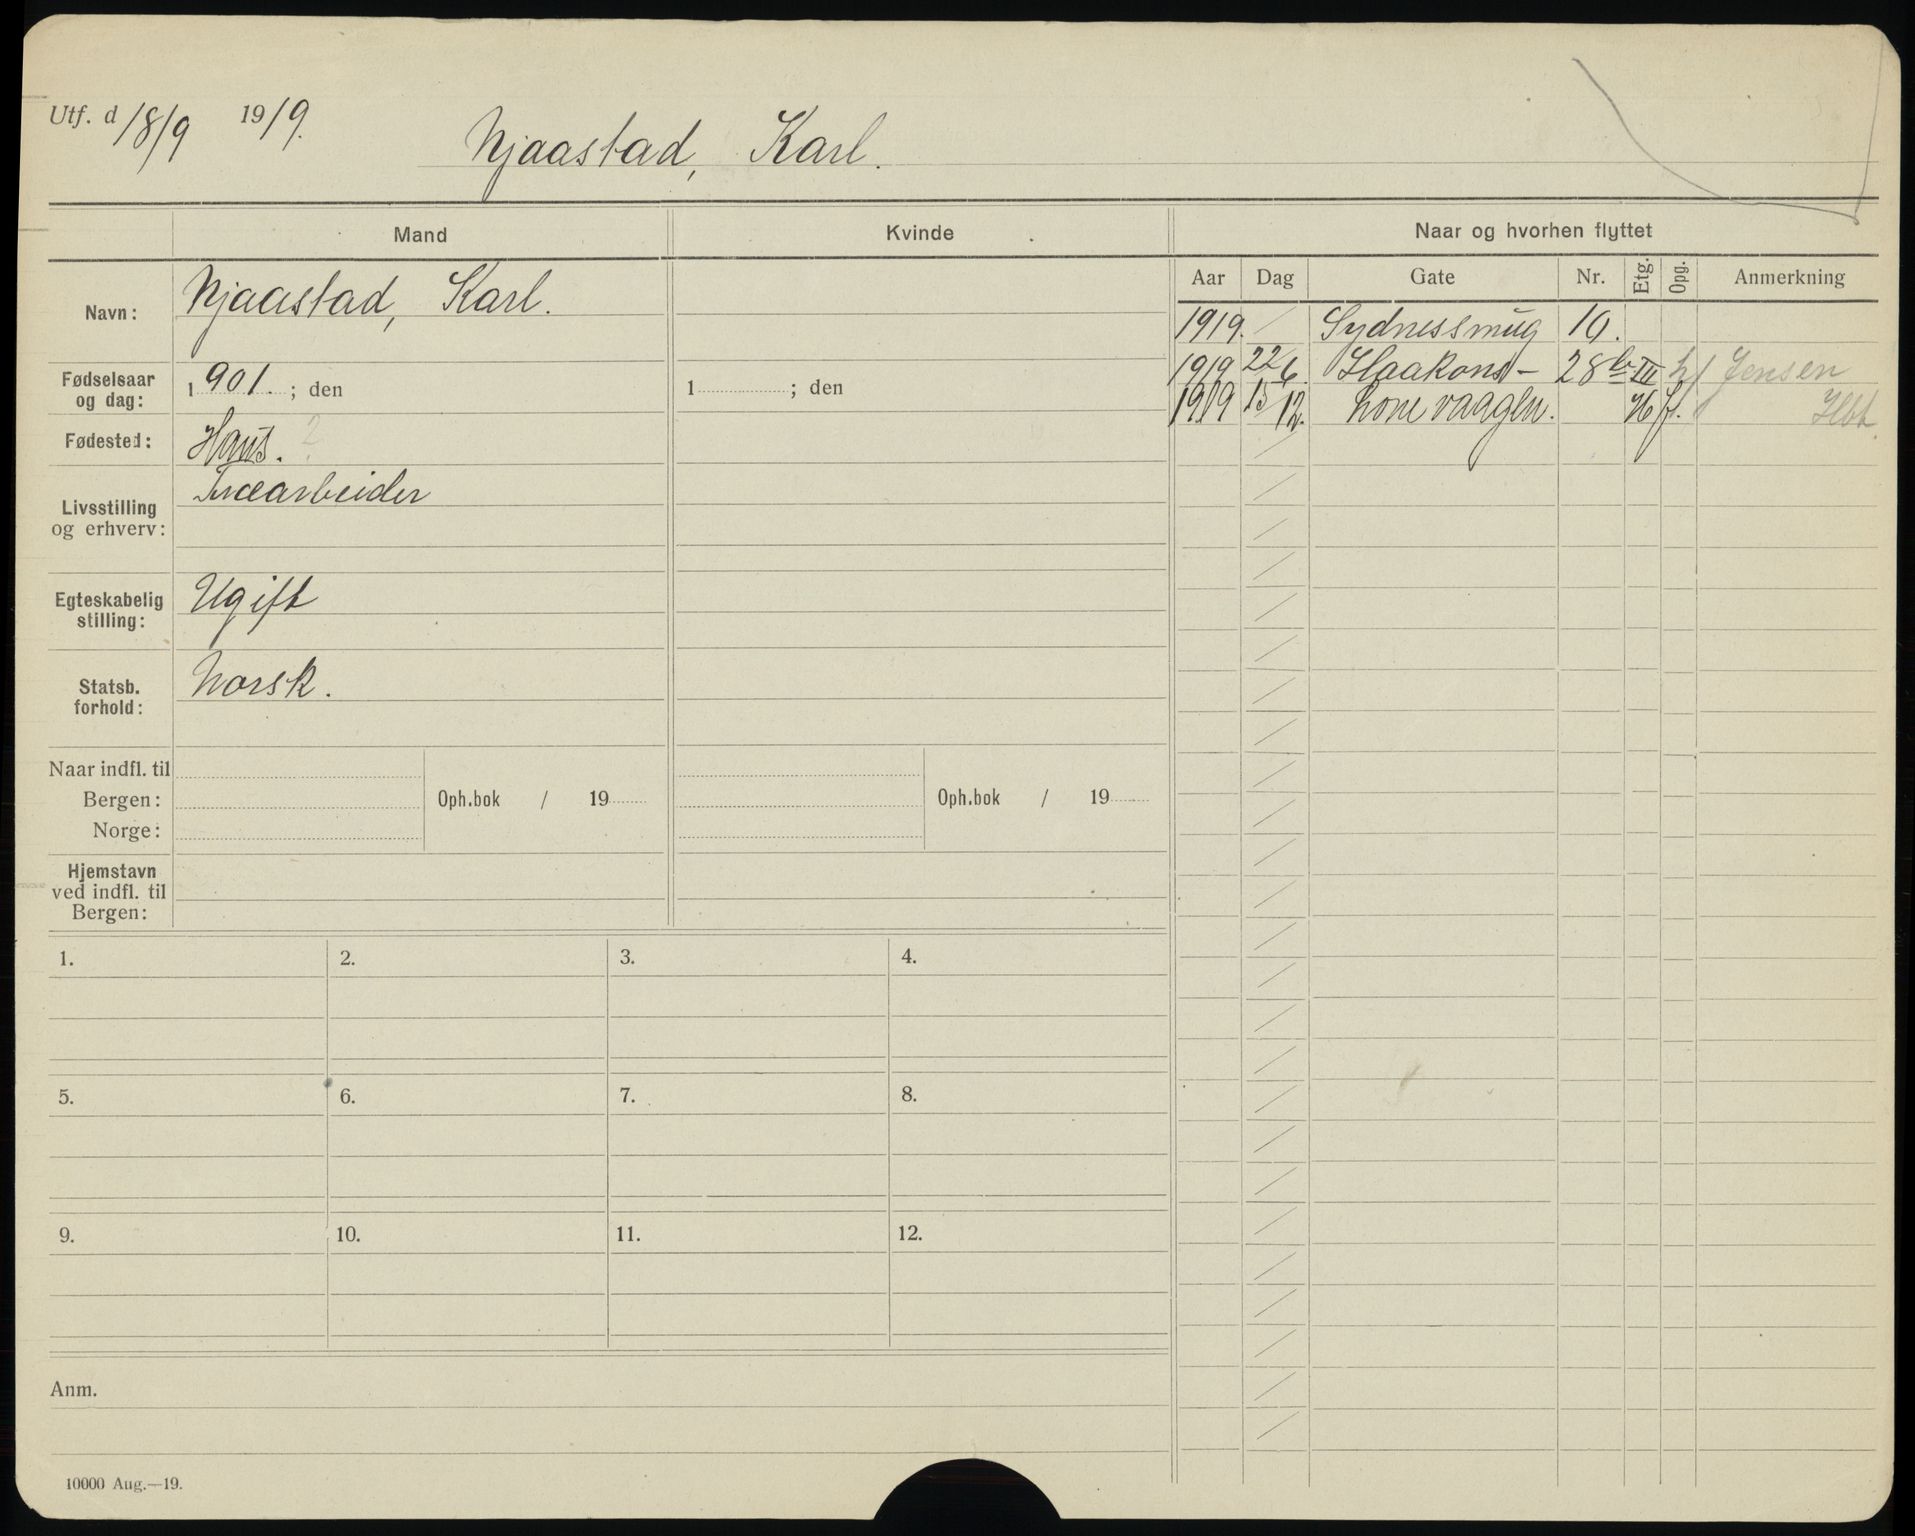 Utf. d 18/9 1919.
Njaastad, Karl.
Mand Kvinde Naar og hvorhen flyttet
Aar Dag Gate Nr. Etg. Opg. Anmerkning
Navn: Njaastad, Karl.
1919. / Sydnessmug 10.
1919 22/6 Haakons- 28b III h/ Jensen
1919 15/12. Lonevaagen. Hbt.
Fødselsaar og dag: 1901. ; den 1 ; den
Fødested: Haus. ?
Livsstilling og erhverv: Træarbeider
Egteskabelig stilling: Ugift
Statsb. forhold: Norsk.
Naar indfl. til
Bergen: Oph.bok / 19 Oph.bok / 19
Norge:
Hjemstavn
ved indfl. til
Bergen:
1. 2. 3. 4.
5. 6. 7. 8.
9. 10. 11. 12.
Anm.
10000 Aug.—19.